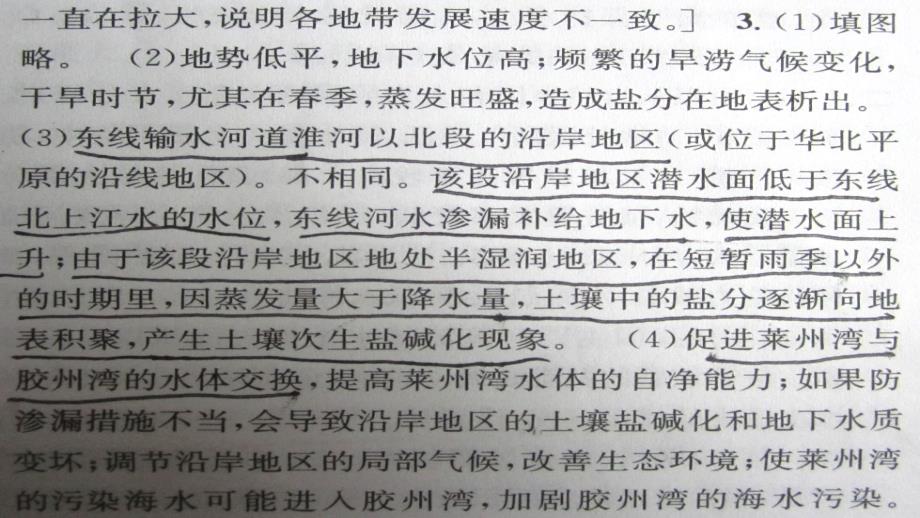 一直在拉大,说明各地带发展速度不一致。] 3. (1)填图
略。 (2)地势低平,地下水位高;频繁的旱涝气候变化,
干旱时节,尤其在春季,蒸发旺盛,造成盐分在地表析出。
(3)东线输水河道淮河以北段的沿岸地区(或位于华北平
原的沿线地区)。不相同。该段沿岸地区潜水面低于东线
北上江水的水位,东线河水渗漏补给地下水,使潜水面上
升;由于该段沿岸地区地处半湿润地区,在短暂雨季以外
的时期里,因蒸发量大于降水量,土壤中的盐分逐渐向地
表积聚,产生土壤次生盐碱化现象。 (4)促进莱州湾与
胶州湾的水体交换,提高莱州湾水体的自净能力;如果防
渗漏措施不当,会导致沿岸地区的土壤盐碱化和地下水质
变坏;调节沿岸地区的局部气候,改善生态环境;使莱州湾
的污染海水可能进入胶州湾,加剧胶州湾的海水污染。